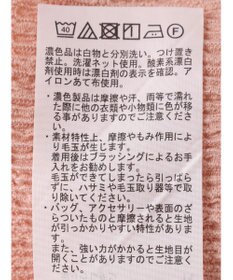 40 F
濃色品は白物と分別洗い。つけ置き
禁止。洗濯ネット使用。酸素系漂白
剤使用時は漂白剤の表示を確認。ア
イロンあて布使用。
・濃色製品は摩擦や汗、雨等で濡
れた際に他の衣類や小物類に色が移
る事がありますのでご注意くださ
い。
・素材特性上、摩擦やもみ作用によ
り毛玉が生じます。
着用後はブラッシングによるお手
入れをお勧めします。
毛玉ができてしまったら引っぱら
ずに、ハサミや毛玉取り器等で取
り除いてください。
・バッグ、アクセサリーや表面のざ
らついたものと摩擦されると生地
が引っかかりやすい特性がありま
す。
また、強い力がかかると生地目が
開くことがありますのでご注意く